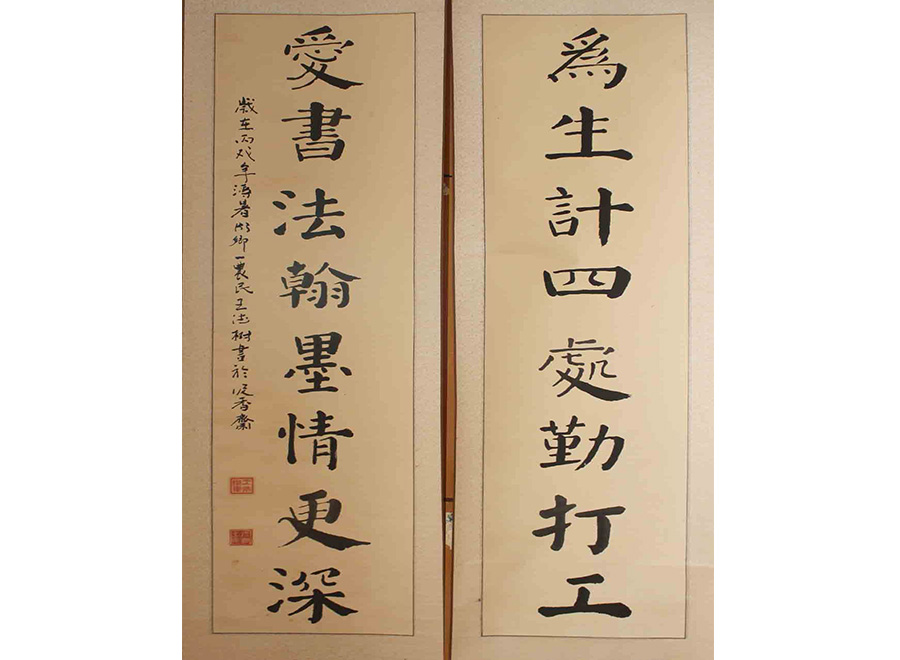 爲生計四處勤打工
愛書法翰墨情更深
歲在丙戌年鄉一農民王德樹書於香齋